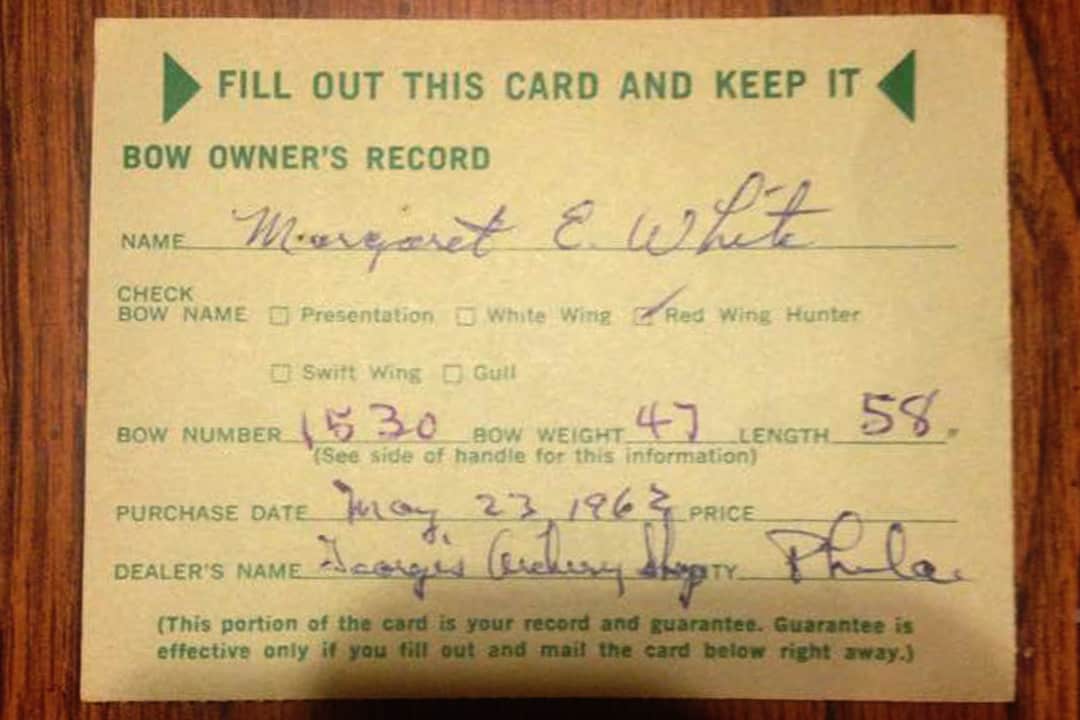 FILL OUT THIS CARD AND KEEP IT
BOW OWNER'S RECORD
NAME Margaret E. White
CHECK
BOW NAME Presentation White Wing Red Wing Hunter
Swift Wing Gull
BOW NUMBER 1530 BOW WEIGHT 47 LENGTH 58"
(See side of handle for this information)
PURCHASE DATE May 23 1962 PRICE
DEALER'S NAME George's Archery Shop Phila
(This portion of the card is your record and guarantee. Guarantee is
effective only if you fill out and mail the card below right away.)